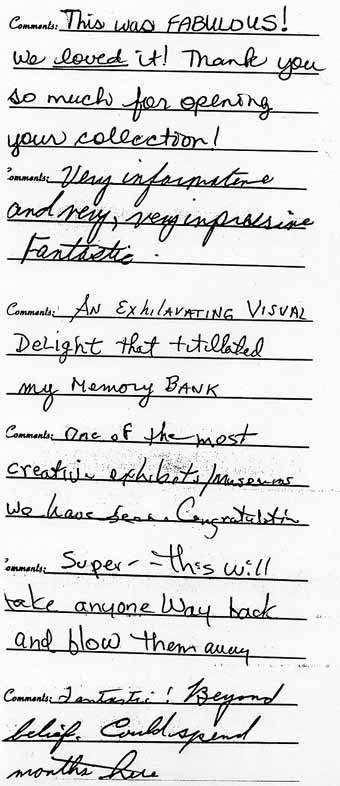 Comments: This was FABULOUS!
We loved it! Thank you
so much for opening
your collection!
Comments: Very informative
and very, very impressive
Fantastic.
Comments: AN EXHILAVATING VISUAL
DELIGHT that titillated
my MEMORY BANK
Comments: One of the most
creative exhibits/museums
we have seen. Congratulations
Comments: Super - - this will
take anyone Way back
and blow them away
Comments: Fantastic! Beyond
belief. Could spend
months here